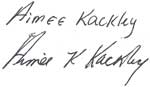 Aimee Kackley
Aimee K Kackley